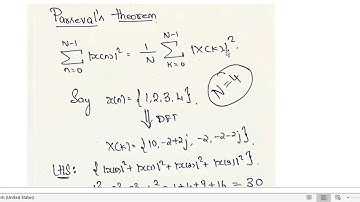 Parseval's theorem
N-1 Σ n=0 |x(n)|² = 1/N N-1 Σ k=0 |X(k)|².
N=4
Say x(n) = {1,2,3,4}
⇓ DFT
X(k) = {10, -2+2j, -2, -2-2j}
LHS: {|x(0)|² + |x(1)|² + |x(2)|² + |x(3)|²}.
= 30
(United States)